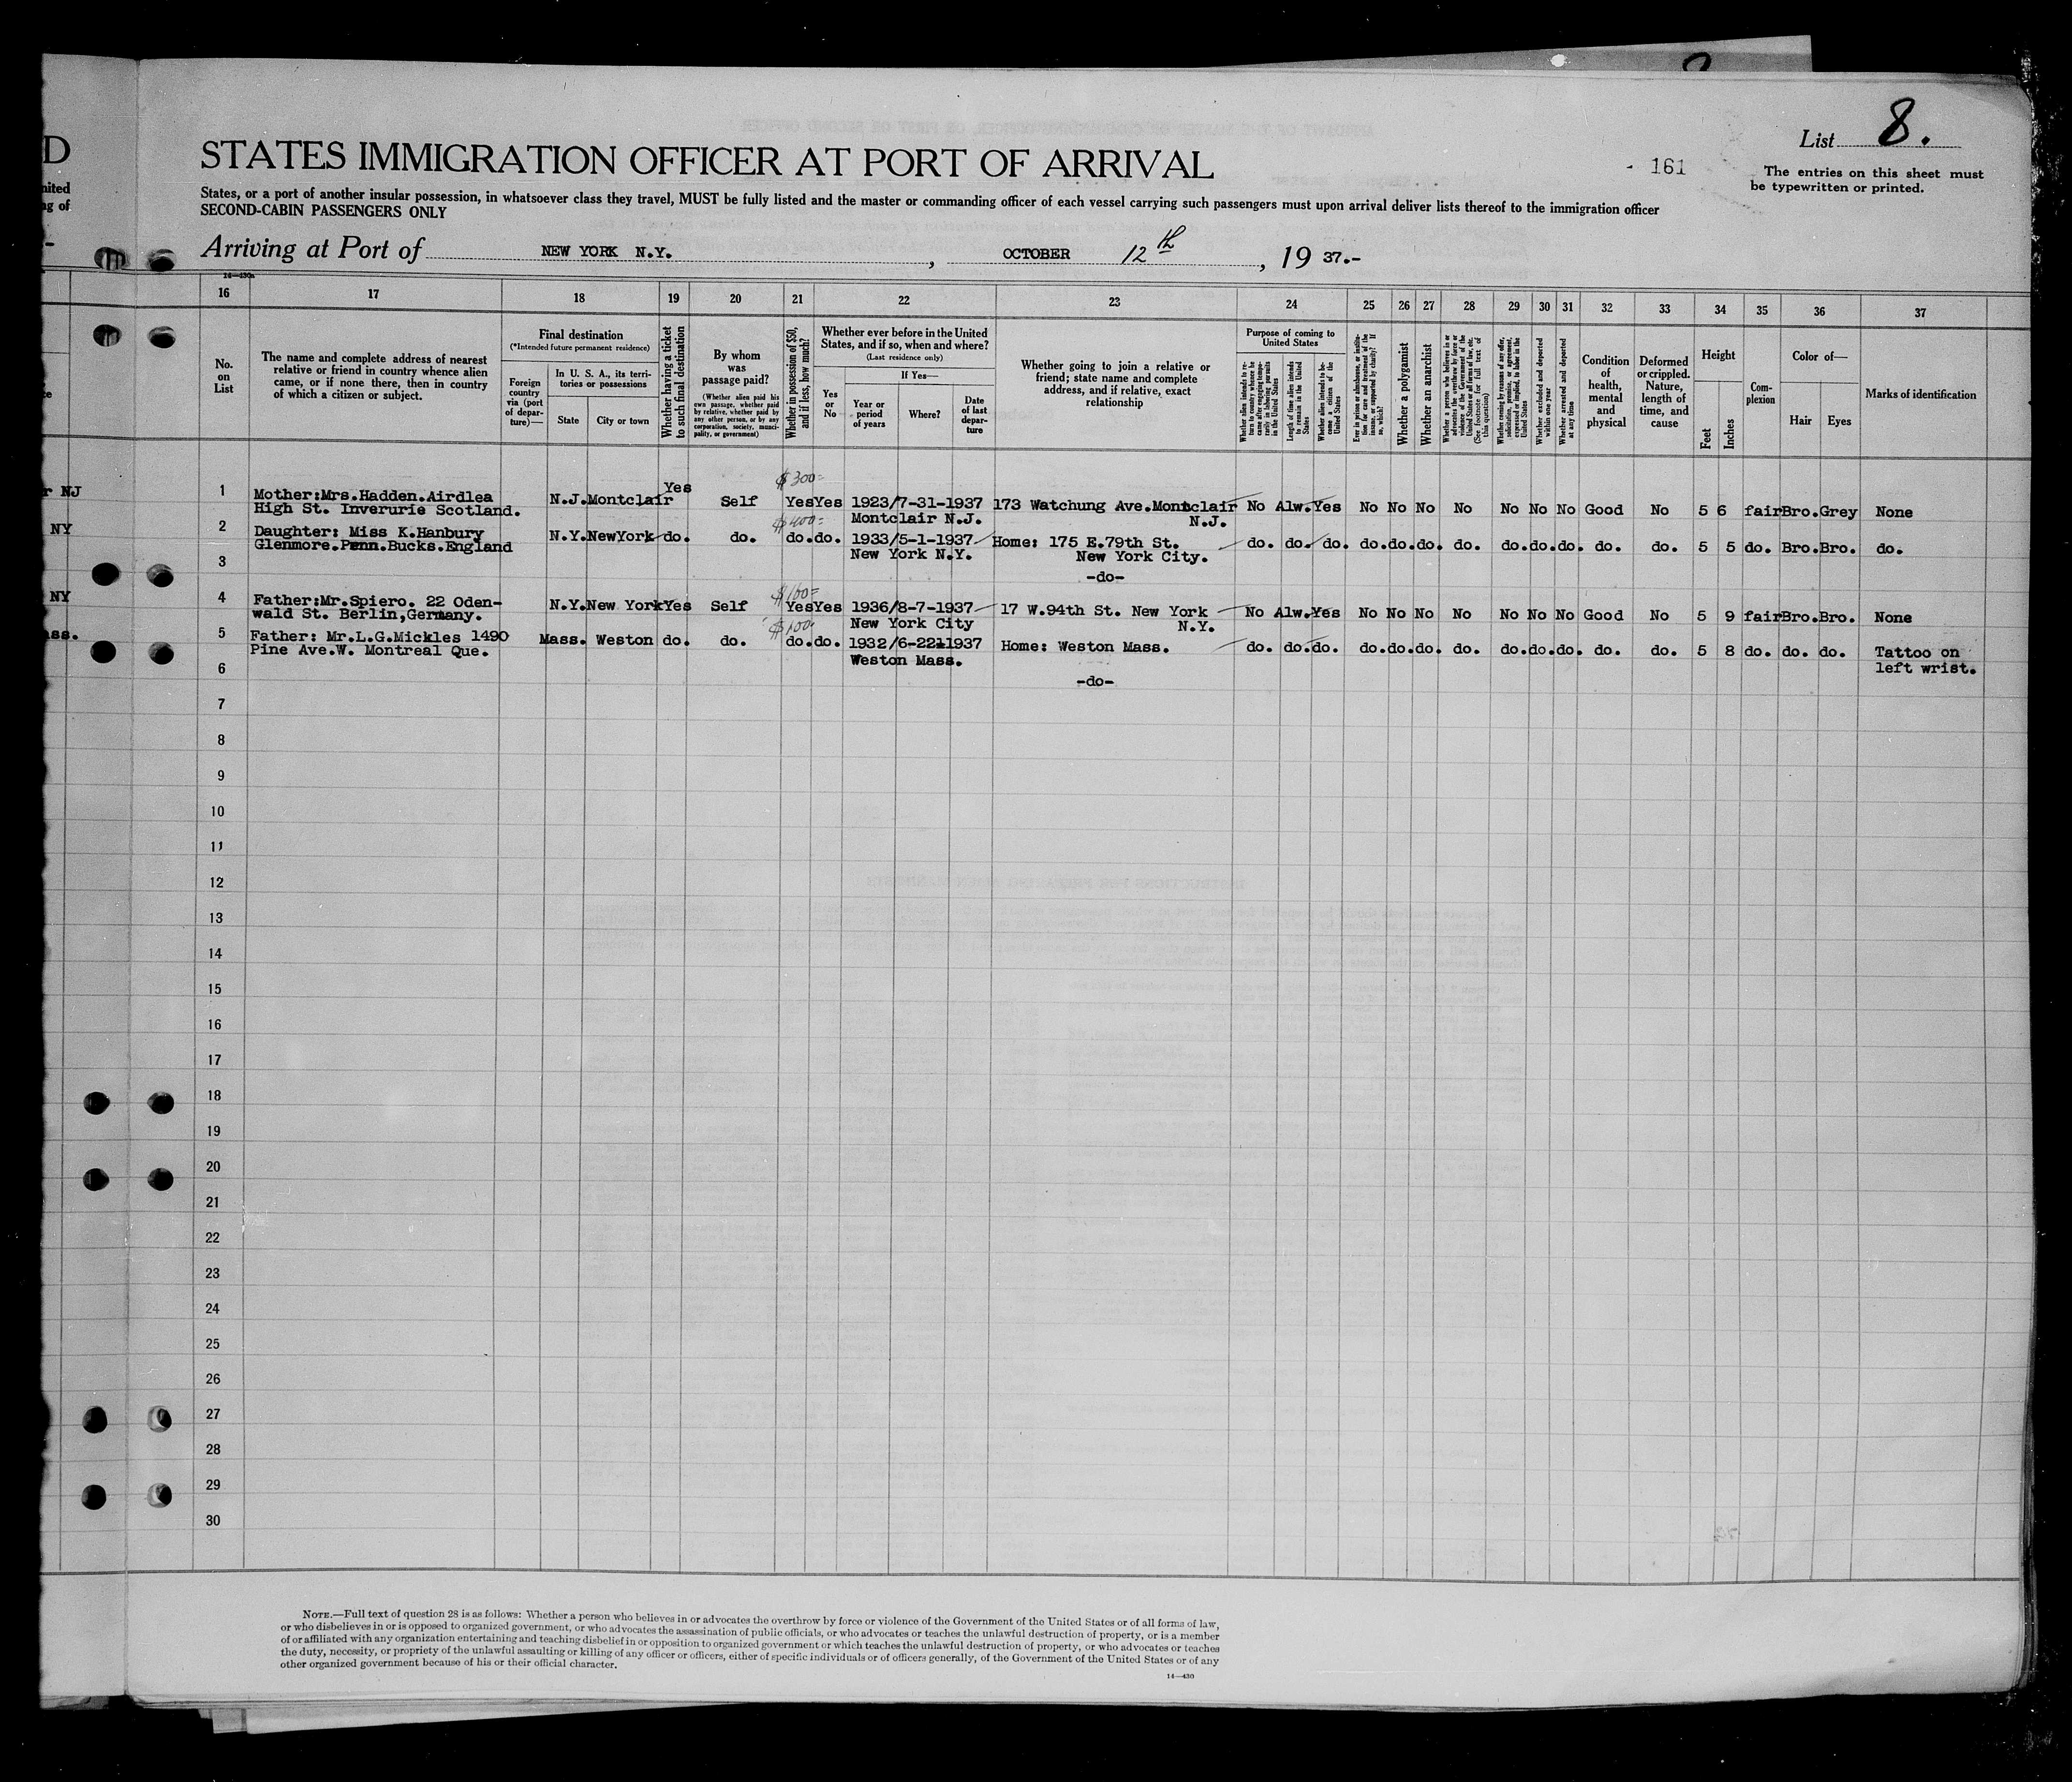 D
STATES IMMIGRATION OFFICER AT PORT OF ARRIVAL
List 8.
161
The entries on this sheet must
be typewritten or printed.
States, or a port of another insular possession, in whatsoever class they travel, MUST be fully listed and the master or commanding officer of each vessel carrying such passengers must upon arrival deliver lists thereof to the immigration officer
SECOND-CABIN PASSENGERS ONLY
Arriving at Port of NEW YORK N.Y., OCTOBER 12th, 19 37.-
16 17 18 19 20 21 22 23 24 25 26 27 28 29 30 31 32 33 34 35 36 37
No. on List
The name and complete address of nearest
relative or friend in country whence alien
came, or if none there, then in country
of which a citizen or subject.
Final destination
(*Intended future permanent residence)
Foreign country via (port of departure)—
In U. S. A., its territories or possessions
State
City or town
Whether having a ticket to such final destination
By whom was passage paid?
(Whether alien paid his own passage, whether paid by relative, whether paid by any other person, or by any corporation, society, municipality, or government)
Whether in possession of $50, and if less, how much?
Whether ever before in the United
States, and if so, when and where?
(Last residence only)
Yes or No
If Yes—
Year or period of years
Where?
Date of last departure
Whether going to join a relative or
friend; state name and complete
address, and if relative, exact
relationship
Purpose of coming to United States
Whether alien intends to return to country whence he came after engaging temporarily in laboring pursuits in the United States
Length of time alien intends to remain in the United States
Whether alien intends to become a citizen of the United States
Ever in prison or almshouse, or institution for care and treatment of the insane, or supported by charity? If so, which?
Whether a polygamist
Whether an anarchist
(See footnote for full text of this question)
Whether coming by reason of any offer, solicitation, promise, or agreement, expressed or implied, to labor in the United States
Whether excluded and deported within one year
Whether arrested and deported at any time
Condition of health, mental and physical
Deformed or crippled. Nature, length of time, and cause
Height
Feet
Inches
Complexion
Color of—
Hair
Eyes
Marks of identification
r NJ
$300=
1 Mother:Mrs.Hadden.Airdlea N.J. Montclair Yes Self Yes Yes 1923/7-31-1937 173 Watchung Ave.Montclair No Alw. Yes No No No No No No No Good No 5 6 fair Bro. Grey None
High St. Inverurie Scotland. Montclair N.J. N.J.
NY
$400=
2 Daughter: Miss K.Hanbury N.Y. NewYork do. do. do. do. 1933/5-1-1937 Home: 175 E.79th St. do. do. do. do. do. do. do. do. do. do. do. do. 5 5 do. Bro. Bro. do.
Glenmore.Penn.Bucks.England New York N.Y. New York City.
3 -do-
NY
$100=
4 Father:Mr.Spiero. 22 Oden- N.Y. New York Yes Self Yes Yes 1936/8-7-1937 17 W.94th St. New York No Alw. Yes No No No No No No No Good No 5 9 fair Bro. Bro. None
wald St. Berlin,Germany. New York City N.Y.
ass.
$100=
5 Father: Mr.L.G.Mickles 1490 Mass. Weston do. do. do. do. 1932/6-22-1937 Home: Weston Mass. do. do. do. do. do. do. do. do. do. do. do. do. 5 8 do. do. do. Tattoo on
Pine Ave.W. Montreal Que. Weston Mass. left wrist.
6 -do-
7
8
9
10
11
12
13
14
15
16
17
18
19
20
21
22
23
24
25
26
27
28
29
30
NOTE.—Full text of question 28 is as follows: Whether a person who believes in or advocates the overthrow by force or violence of the Government of the United States or of all forms of law,
or who disbelieves in or is opposed to organized government, or who advocates the assassination of public officials, or who advocates or teaches the unlawful destruction of property, or is a member
of or affiliated with any organization entertaining and teaching disbelief in or opposition to organized government or which teaches the unlawful destruction of property, or who advocates or teaches
the duty, necessity, or propriety of the unlawful assaulting or killing of any officer or officers, either of specific individuals or of officers generally, of the Government of the United States or of any
other organized government because of his or their official character.
14—430